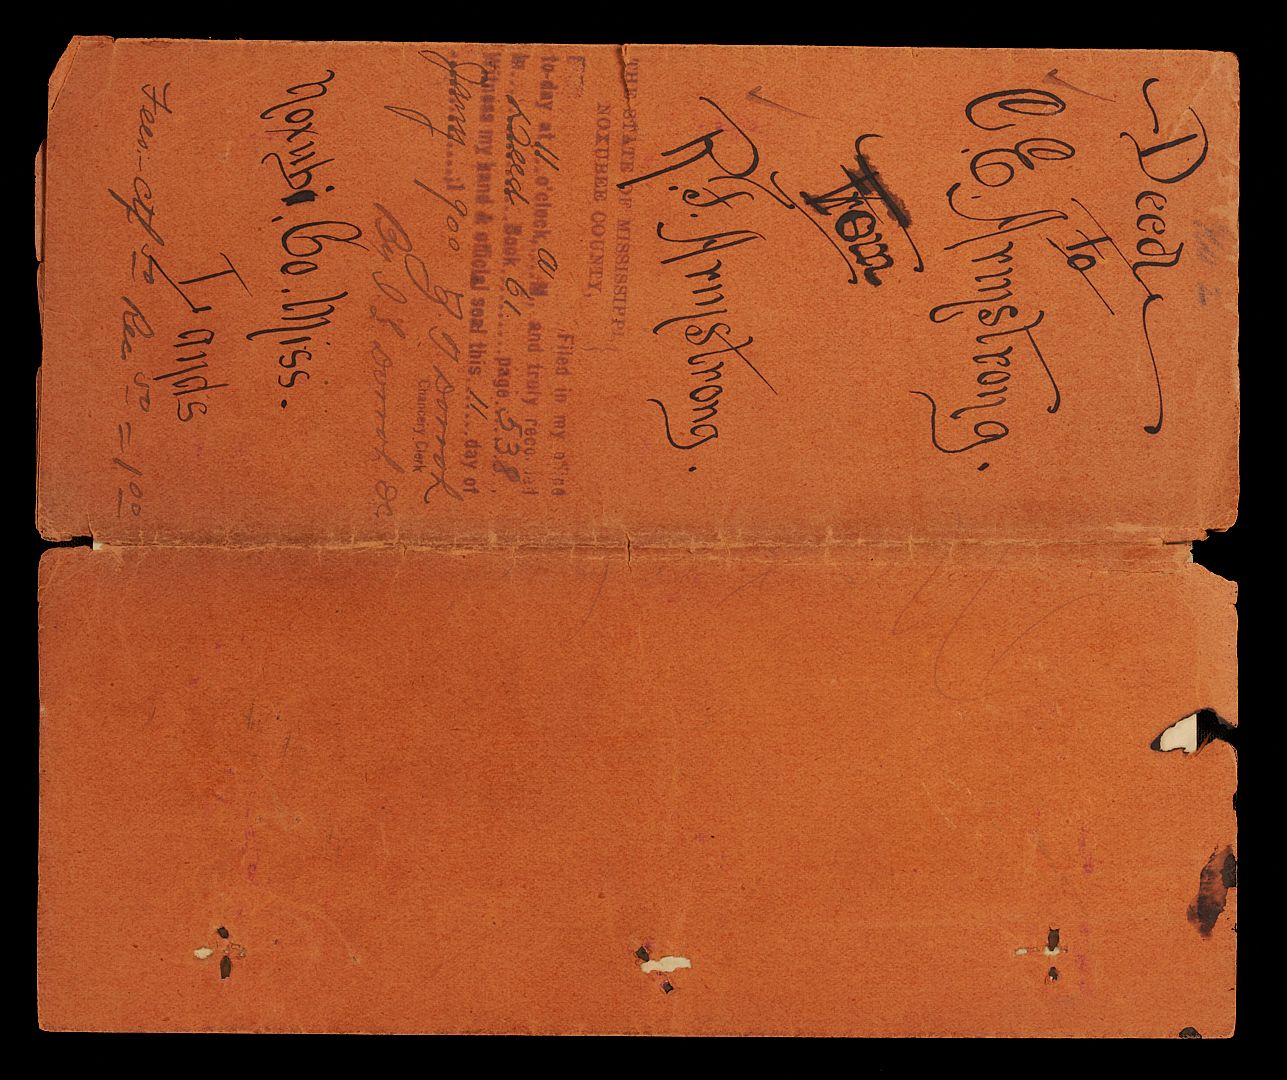 Deed
C. E. Armstrong.
to
From
R. S. Armstrong.
THE STATE OF MISSISSIPPI,
NOXUBEE COUNTY,
Filed in my office
to-day at 11 o'clock, A M., and truly recorded
in Deed Book 61 page 538
Witness my hand & official seal this 11 day of
Jany 1900
Chancery Clerk
By
Noxubee Co. Miss.
Lands
Fees - ctf 50 Rec 50 = 1 00